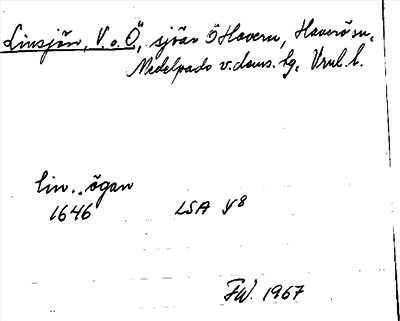 Linsjön, V. o. Ö, sjöar Ö Havern, Haverö sn,
Medelpads v. doms. hg, Vrnl. l.
lin.. ögan
1646 LSA Y8
FW. 1967